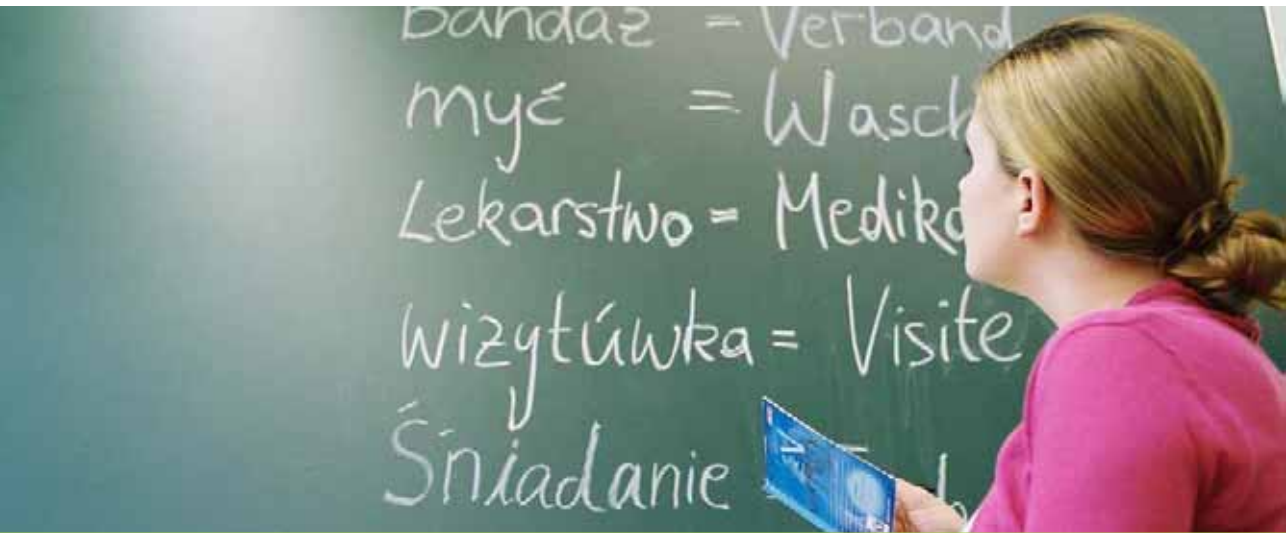 bandaż = Verband
myć = Wasch
Lekarstwo = Medika
wizytúwka = Visite
Śniadanie =